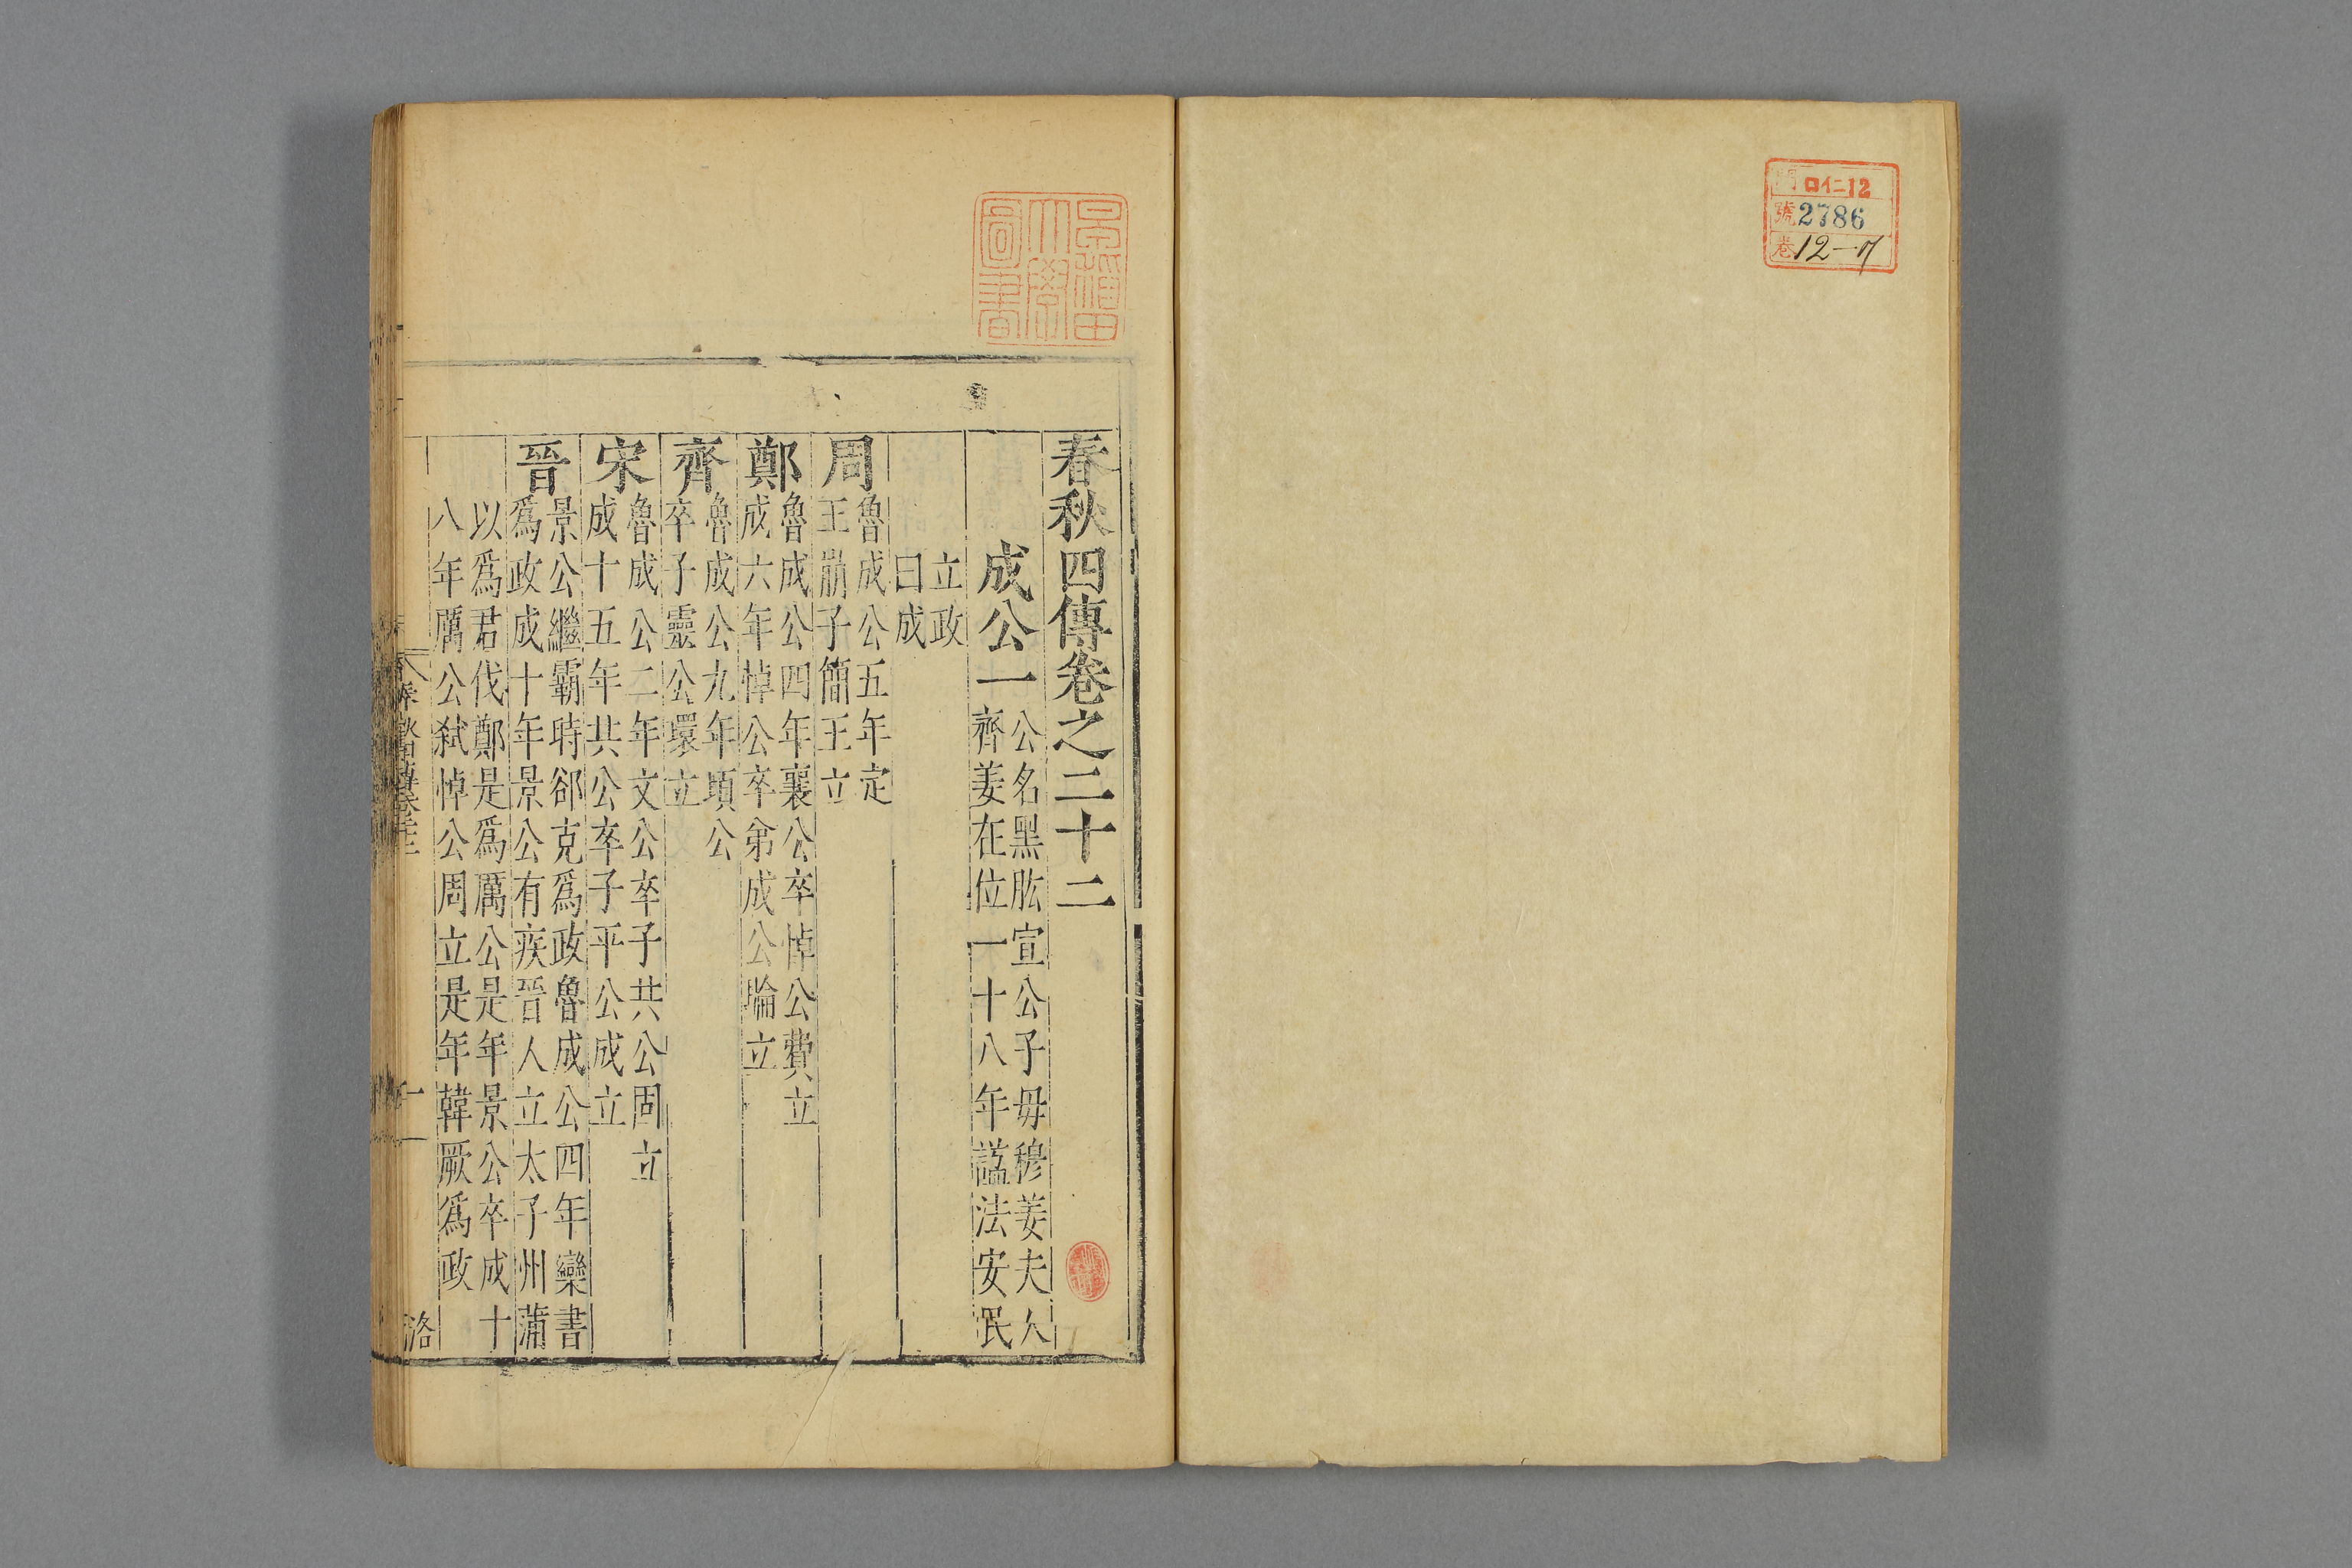 門 ロ仁12
號 2786
卷 12-7
早稲田
大學
圖書
春秋四傳卷之二十二
成公一
公名黑肱宣公子毋穆姜夫人
齊姜在位一十八年諡法安民
立政
曰成
周
魯成公五年定
王崩子簡王立
鄭
魯成公四年襄公卒悼公費立
成六年悼公卒弟成公睔立
齊
魯成公九年頃公
卒子靈公環立
宋
魯成公二年文公卒子共公固立
成十五年共公卒子平公成立
晉
景公繼霸時郤克爲政魯成公四年欒書
爲政成十年景公有疾晉人立太子州蒲
以爲君伐鄭是爲厲公是年景公卒成十
八年厲公弑悼公周立是年韓厥爲政